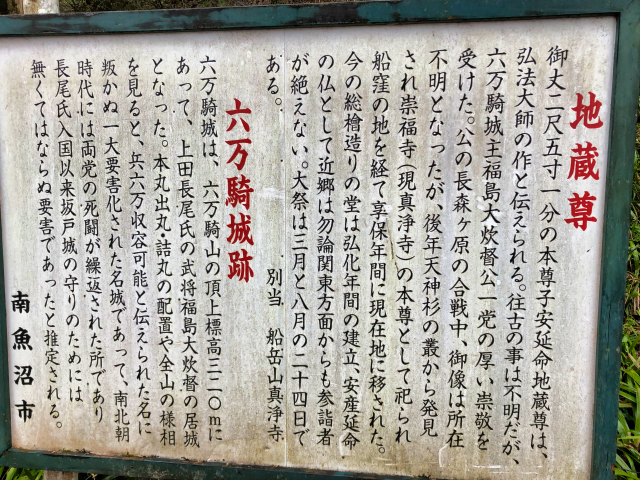 地蔵尊
御丈二尺五寸一分の本尊子安延命地蔵尊は、
弘法大師の作と伝えられる。往古の事は不明だが、
六万騎城主福島大炊督公一党の厚い崇敬を
受けた。公の長森ヶ原の合戦中、御像は所在
不明となったが、後年天神杉の叢から発見
され崇福寺(現真浄寺)の本尊として祀られ
船窪の地を経て享保年間に現在地に移された。
今の総檜造りの堂は弘化年間の建立、安産延命
の仏として近郷は勿論関東方面からも参詣者
が絶えない。大祭は三月と八月の二十四日で
ある。
別当 船岳山真浄寺
六万騎城跡
六万騎城は、六万騎山の頂上標高三二〇mに
あって、上田長尾氏の武将福島大炊督の居城
となった。本丸出丸・詰丸の配置や全山の様相
を見ると、兵六万収容可能と伝えられた名に
叛かぬ一大要害化された名城であって、南北朝
時代には両党の死闘が繰返された所であり
長尾氏入国以来坂戸城の守りのためには
無くてはならぬ要害であったと推定される。
南魚沼市